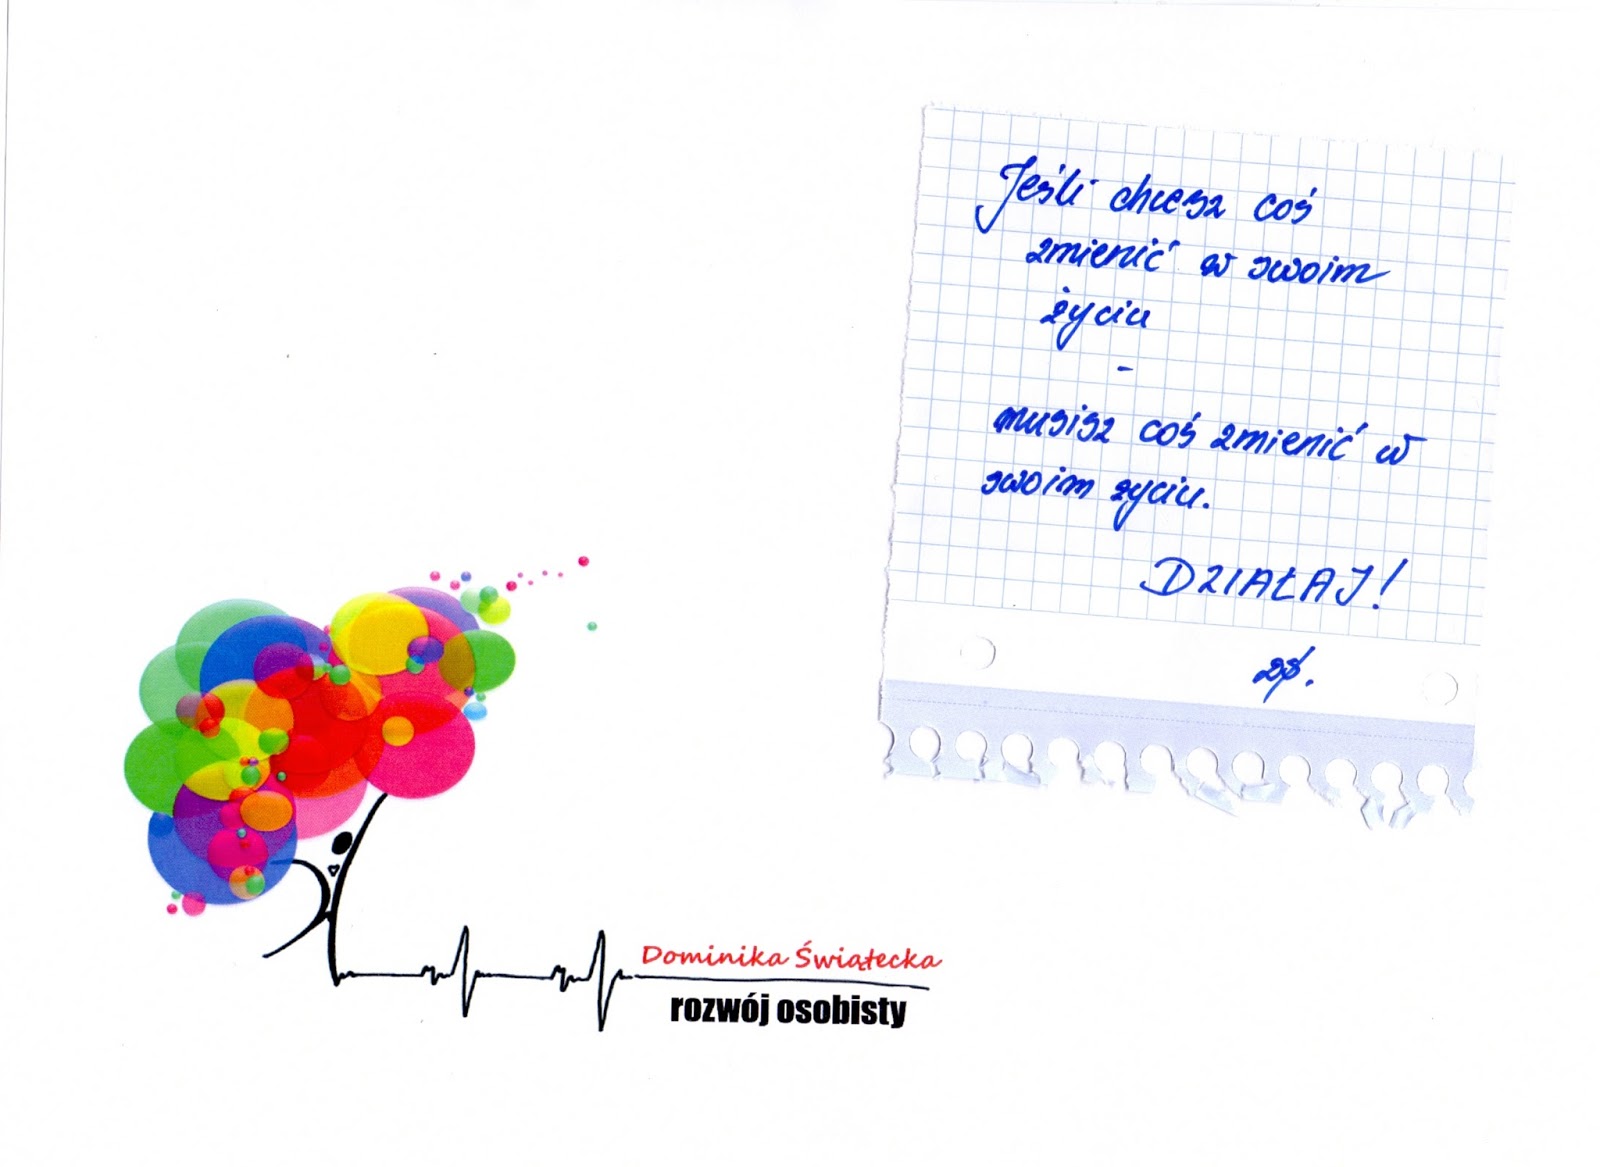 Jeśli chcesz coś
zmienić w swoim
życiu
-
musisz coś zmienić w
swoim życiu.
DZIAŁAJ!
Dominika Świątecka
rozwój osobisty